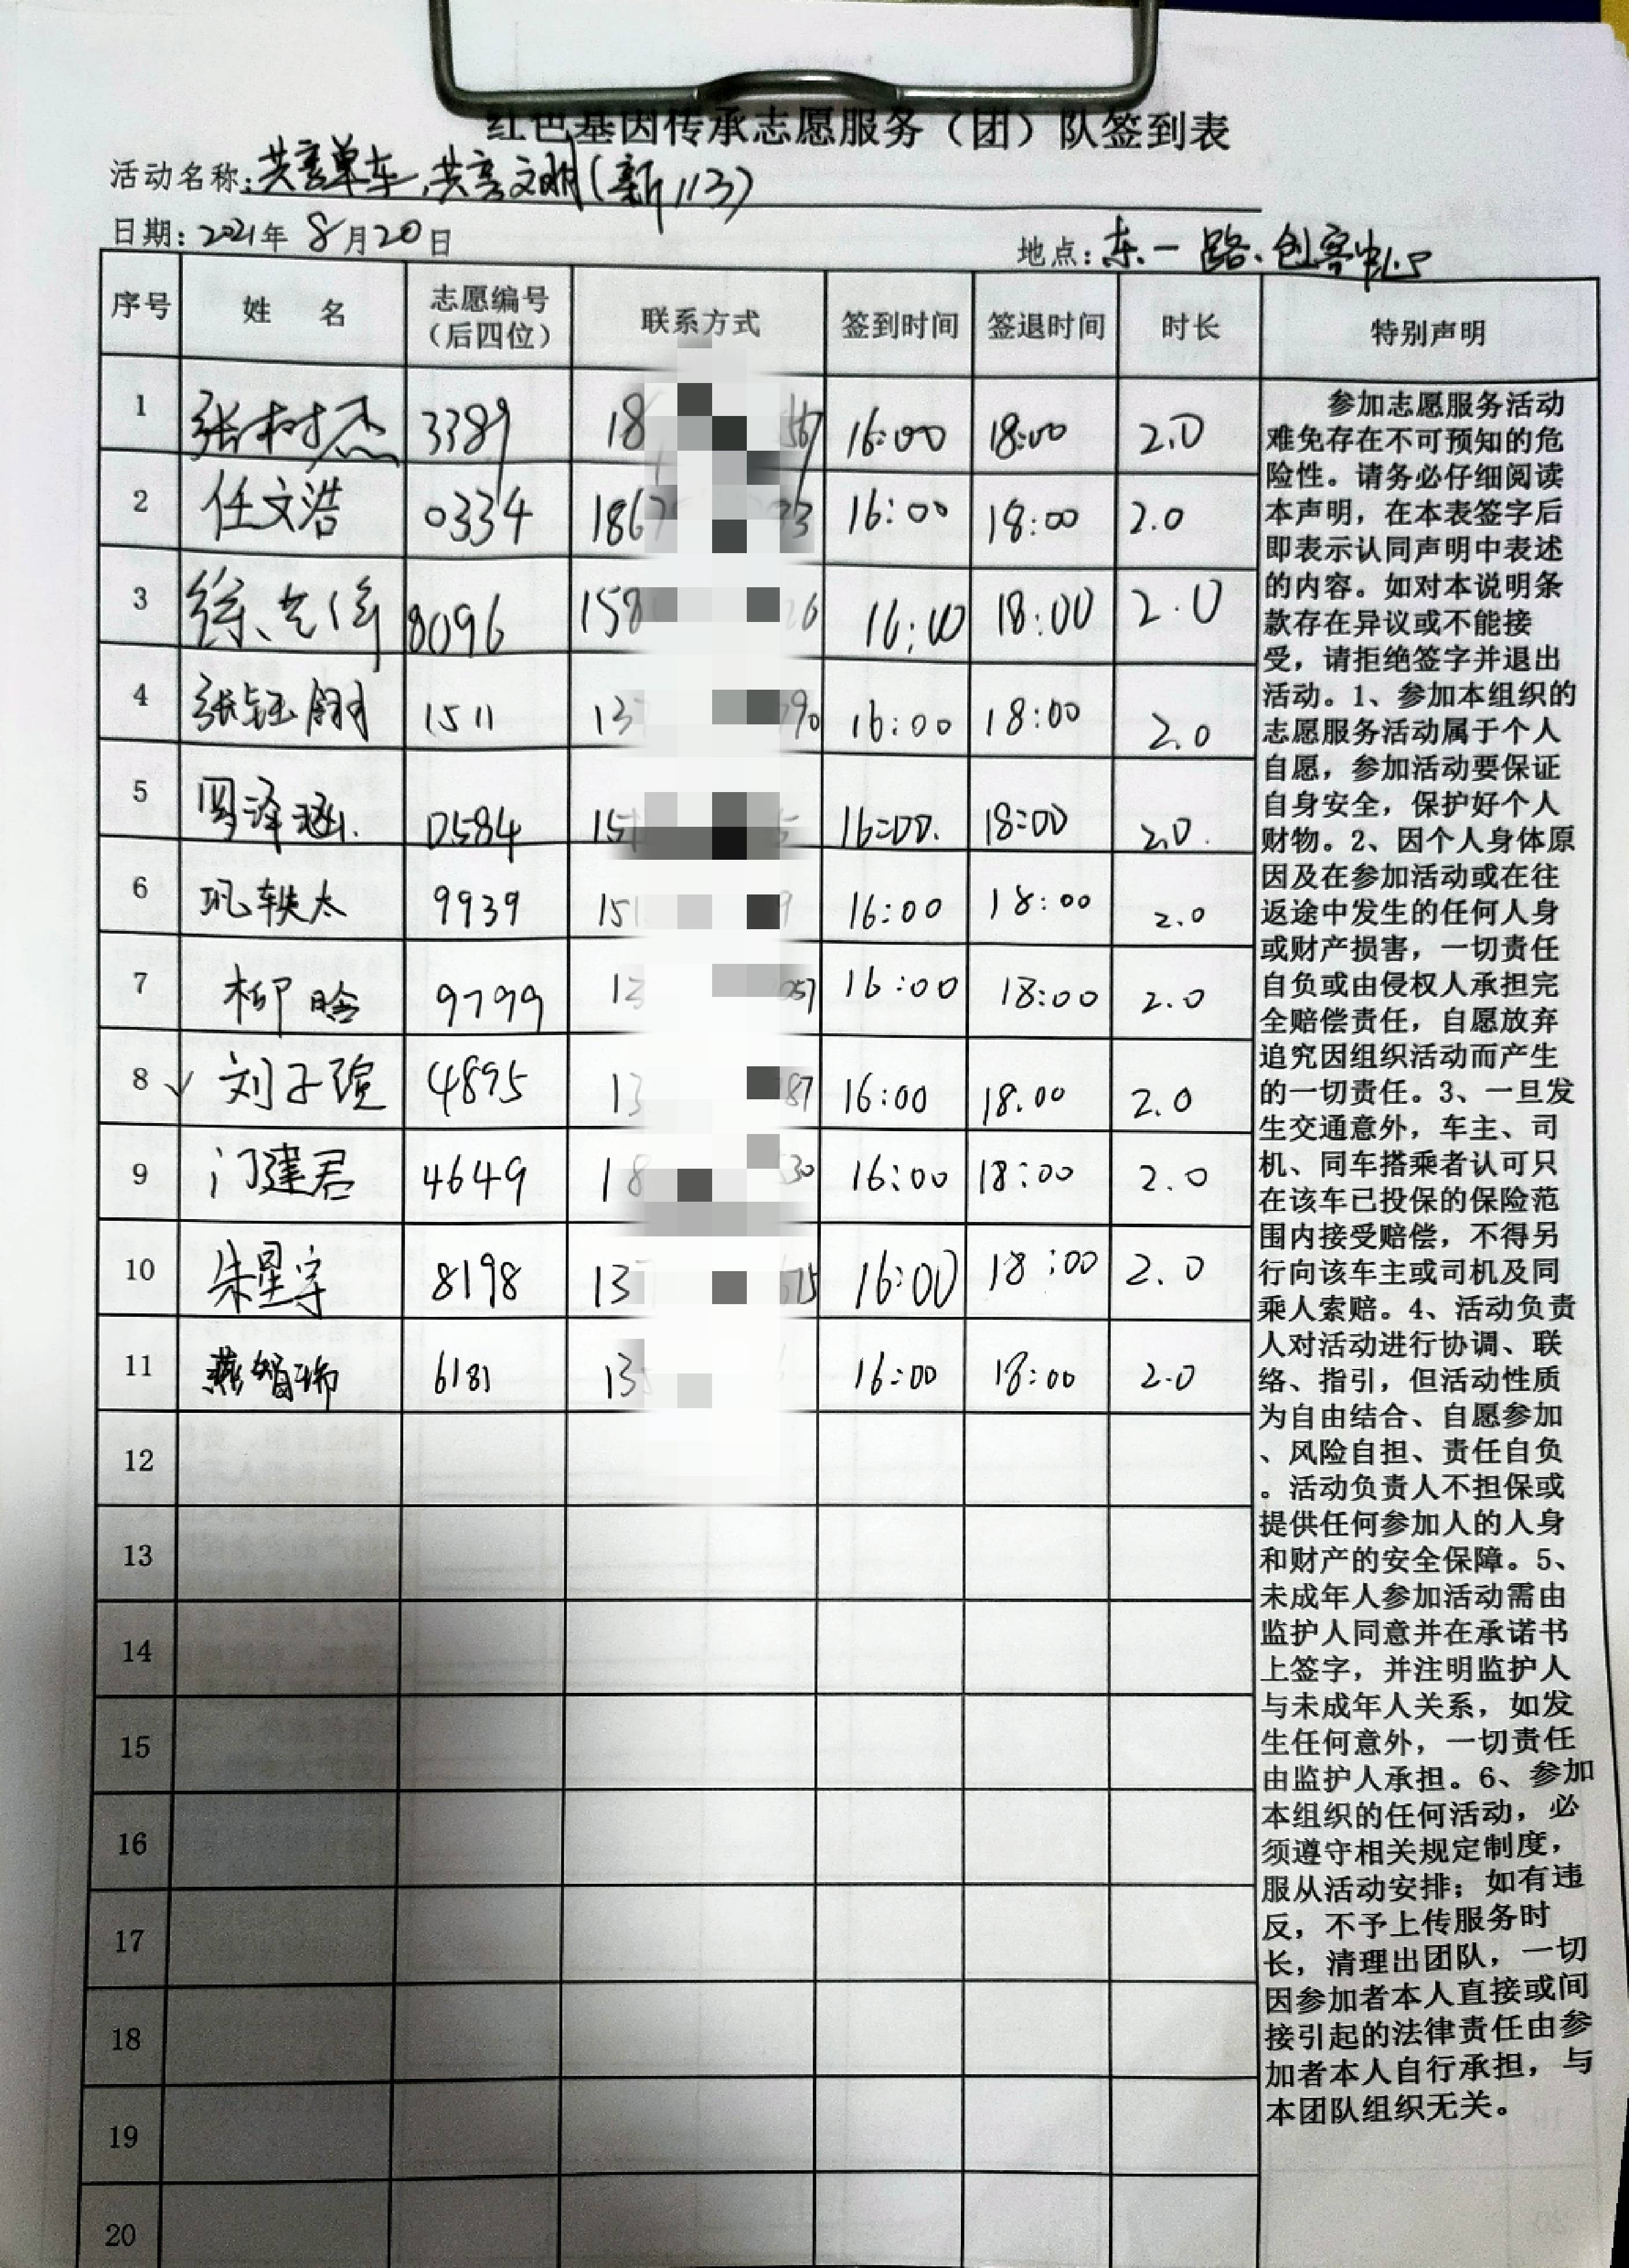 红色基因传承志愿服务（团）队签到表
活动名称：共享单车，共享文明（新113）
日期：2021年 8月20日
地点：东一路、创客中心
序号 姓 名 志愿编号（后四位） 联系方式 签到时间 签退时间 时长 特别声明
1 张树杰 3389 18 567 16:00 18:00 2.0
2 任文浩 0334 186 93 16:00 18:00 2.0
3 徐 8096 158 26 16:00 18:00 2.0
4 张钰 1511 13 790 16:00 18:00 2.0
5 罗泽涵 0584 151 16:00. 18:00 2.0.
6 巩轶太 9939 151 9 16:00 18:00 2.0
7 柳晗 9799 13 057 16:00 18:00 2.0
8 √ 刘子瑄 4895 13 87 16:00 18.00 2.0
9 门建君 4649 18 530 16:00 18:00 2.0
10 朱星宇 8198 13 675 16:00 18:00 2.0
11 燕智瑞 6181 13 16:00 18:00 2.0
12
13
14
15
16
17
18
19
20
参加志愿服务活动
难免存在不可预知的危
险性。请务必仔细阅读
本声明，在本表签字后
即表示认同声明中表述
的内容。如对本说明条
款存在异议或不能接
受，请拒绝签字并退出
活动。1、参加本组织的
志愿服务活动属于个人
自愿，参加活动要保证
自身安全，保护好个人
财物。2、因个人身体原
因及在参加活动或在往
返途中发生的任何人身
或财产损害，一切责任
自负或由侵权人承担完
全赔偿责任，自愿放弃
追究因组织活动而产生
的一切责任。3、一旦发
生交通意外，车主、司
机、同车搭乘者认可只
在该车已投保的保险范
围内接受赔偿，不得另
行向该车主或司机及同
乘人索赔。4、活动负责
人对活动进行协调、联
络、指引，但活动性质
为自由结合、自愿参加
、风险自担、责任自负
。活动负责人不担保或
提供任何参加人的人身
和财产的安全保障。5、
未成年人参加活动需由
监护人同意并在承诺书
上签字，并注明监护人
与未成年人关系，如发
生任何意外，一切责任
由监护人承担。6、参加
本组织的任何活动，必
须遵守相关规定制度，
服从活动安排；如有违
反，不予上传服务时
长，清理出团队，一切
因参加者本人直接或间
接引起的法律责任由参
加者本人自行承担，与
本团队组织无关。